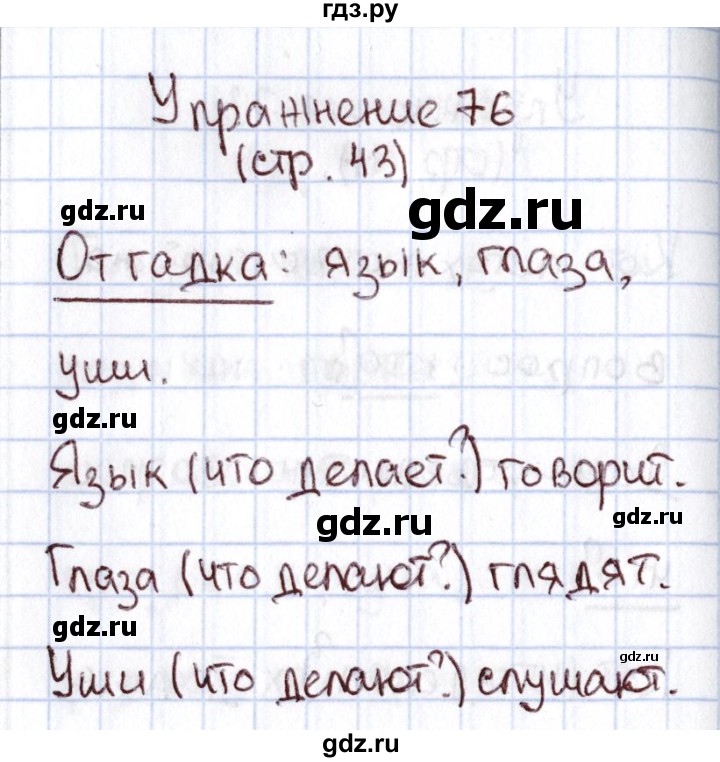 гдз.ру
Упражнение 76
(стр. 43)
gdz.ru
gdz.ru
Отгадка: язык, глаза,
уши.
gdz.ru
Язык (что делает?) говорит.
gdz.ru
gdz.ru
Глаза (что делают?) глядят.
gdz.ru
gdz.ru
Уши (что делают?) слушают.
gdz.ru